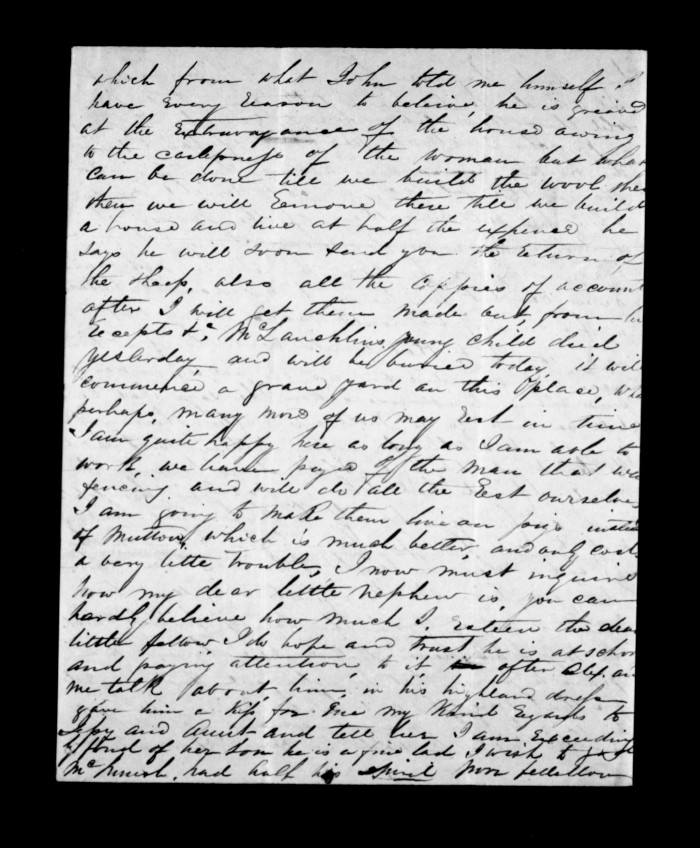 which from what John told me himself I
have every reason to believe, he is grieved
at the Extravagance of the house owing
to the carlessness of the woman but what
can be done till we build the wool shed
then we will Eemove there till we build
a house and live at half the expence he
says he will soon send you the Eeturn, of
the sheep, also all the Coppies of account
after I will get them made out, from
Eecepts &c, McLauchlins young child died
yesterday, and will be buried today, it will
commence, a grave yard on this place,
perhaps, many more of us may Eest in time
I am quite happy here as long as I am able to
work, we have payed of the man that was
fencing and will do all the Eest ourselves
I am going to make them live on pigs instead
of Mutton, which is much better, and only costs
a very little trouble, I now must inquire
how my dear little nephew is, you can
hardly believe how much I, Esteem the dear
little fellow, I do hope and trust he is at school
and paying attention, to it after Alex, and
me talk, about him, in his highland dress
give him a kiss, for me my Kind Egards to
and Aunt and tell her I am Exceeding
fond of her son he is a fine lad I wish to
had half his spirit poor